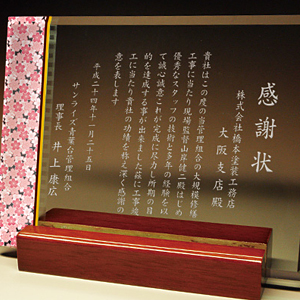 感謝状
株式会社橋本塗装工務店
大阪支店殿
貴社はこの度の当管理組合の大規模修繕
工事に当たり現場監督山岸健二殿はじめ
優秀なスタッフの技術と多年の経験を以
て誠心誠意これが完成に尽力し所期の目
的を達成する事が出来ました茲に工事竣
工に当たり貴社の功績を称え深く感謝の
意を表します
平成二十四年十一月二十五日
サンライズ青葉台管理組合
理事長 井上康広